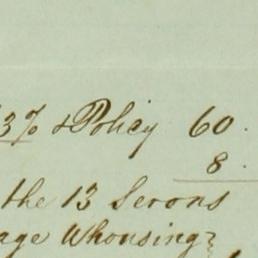 3% & Policy 60.
8.
the 13 Serons
age Whousing